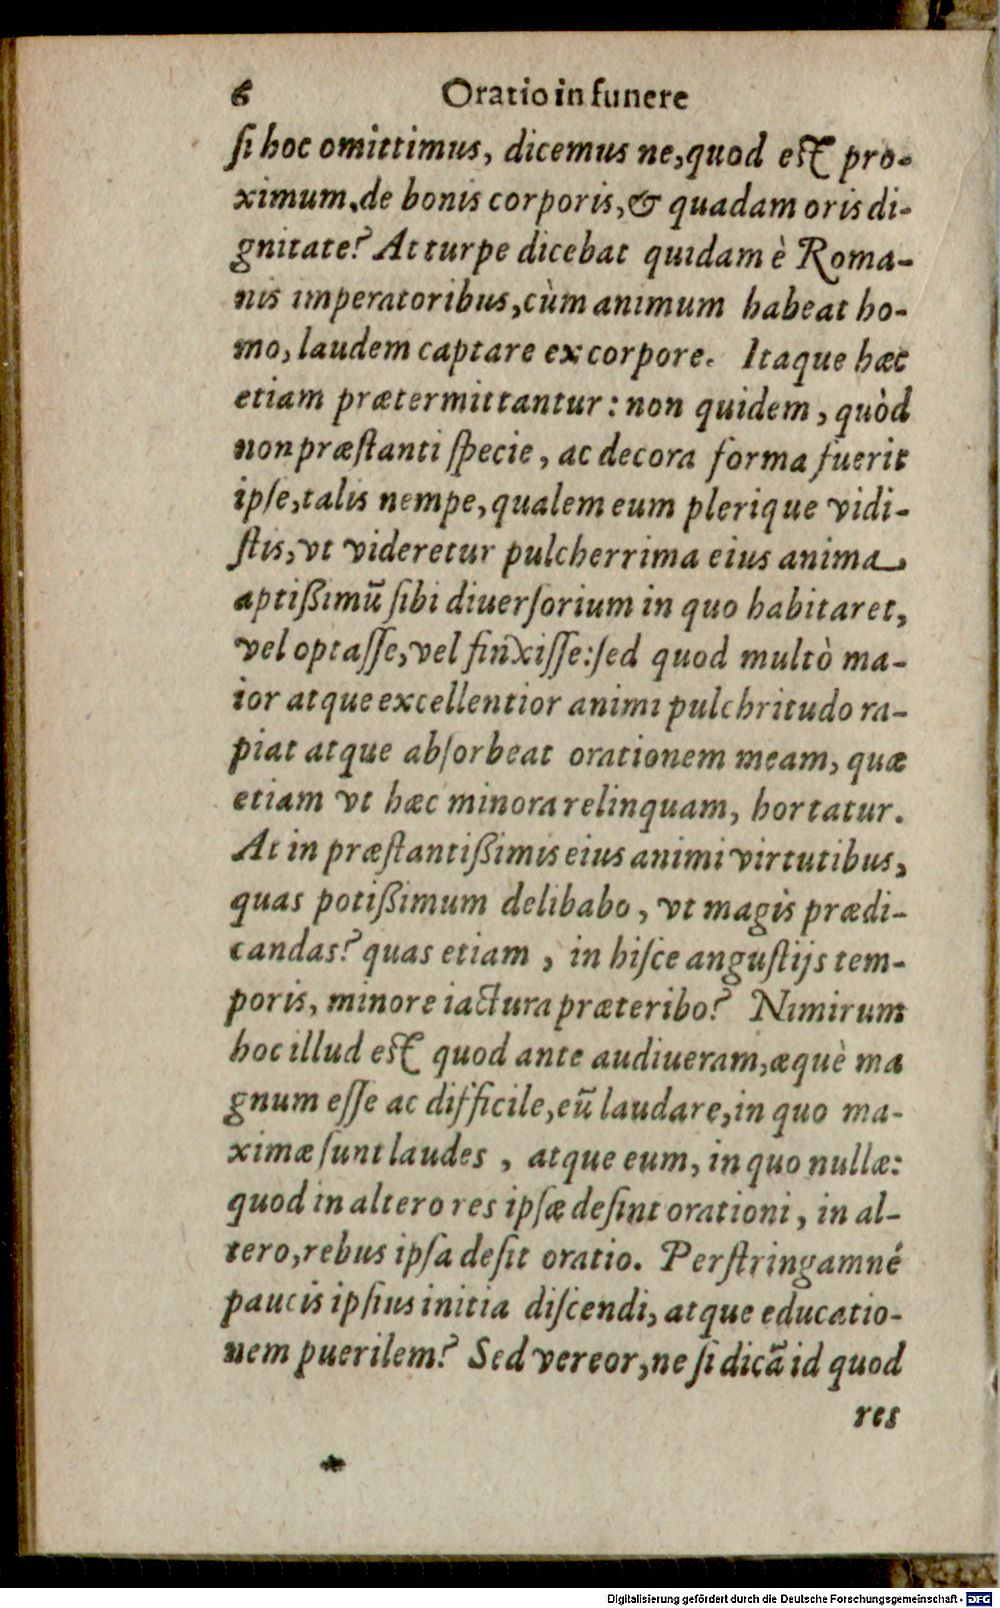 6 Oratio in funere
si hoc omittimus, dicemus ne, quod est pro-
ximum, de bonis corporis, & quadam oris di-
gnitate? At turpe dicebat quidam è Roma-
nis imperatoribus, cùm animum habeat ho-
mo, laudem captare ex corpore. Itaque hæc
etiam prætermittantur: non quidem, quòd
non præstanti specie, ac decora forma fuerit
ipse, talis nempe, qualem eum plerique vidi-
stis, vt videretur pulcherrima eius anima,
aptißimũ sibi diuersorium in quo habitaret,
vel optasse, vel finxisse: sed quod multò ma-
ior atque excellentior animi pulchritudo ra-
piat atque absorbeat orationem meam, quæ
etiam vt hæc minora relinquam, hortatur.
At in præstantißimis eius animi virtutibus,
quas potißimum delibabo, vt magis prædi-
candas? quas etiam, in hisce angustijs tem-
poris, minore iactura præteribo? Nimirum
hoc illud est quod ante audiueram, æquè ma
gnum esse ac difficile, eũ laudare, in quo ma-
ximæ sunt laudes, atque eum, in quo nullæ:
quod in altero res ipsæ desint orationi, in al-
tero, rebus ipsa desit oratio. Perstringamné
paucis ipsius initia discendi, atque educatio-
nem puerilem? Sed vereor, ne si dicã id quod
res
Digitalisierung gefördert durch die Deutsche Forschungsgemeinschaft - DFG